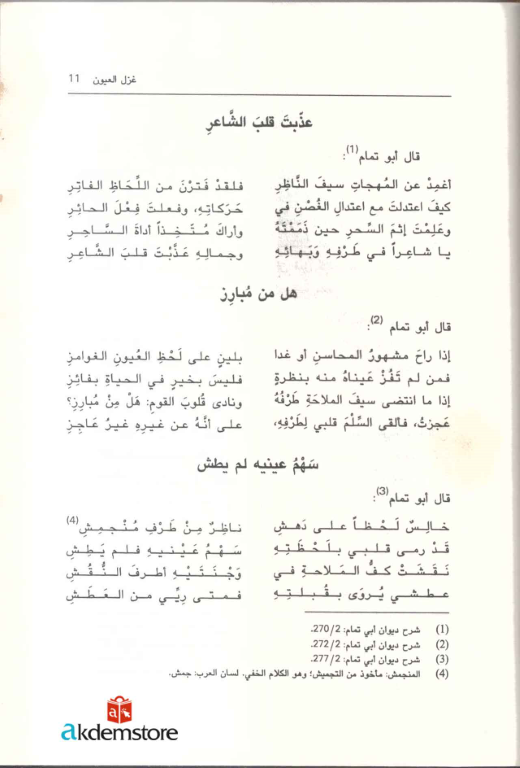 غزل العيون 11
عذّبتَ قلبَ الشَّاعرِ
قال أبو تمام(1):
أغمِدْ عن المهجاتِ سيفَ النَّاظِرِ فلقدْ فَتَرْنَ من اللَّحَاظِ الفاتِرِ
كيفَ اعتدلتَ مع اعتدالِ الغُصْنِ في حَرَكاتِهِ، وفعلتَ فِعْلَ الحائِرِ
وعَلِمْتَ إثمَ السِّحرِ حين ذَمَمْتَهُ وأراكَ مُتَّخِذاً أداةَ السَّاحِرِ
يا شاعِراً في طَرْفِهِ وَبَهائِهِ وجمالِهِ عَذَّبْتَ قلبَ الشَّاعِرِ
هل من مُبارِز
قال أبو تمام (2):
إذا راحَ مشهورُ المحاسنِ أو غدا بلينٍ على لَحْظِ العُيونِ الغَوامزِ
فمن لم تَفُزْ عَيناهُ منه بنظرةٍ فليسَ بخيرٍ في الحياةِ بفائِزِ
إذا ما انتضى سيفَ الملاحَةِ طَرْفُهُ ونادى قُلوبَ القومِ: هَلْ مِنْ مُبارِزِ؟
عَجزتُ، فألقى السِّلْمَ قلبي لِطَرْفِهِ، على انَّهُ عن غيرِهِ غيرُ عاجِزِ
سَهْمُ عينيه لم يطش
قال أبو تمام(3):
خالِسٌ لَحْظاً على دَهَشِ ناظِرٌ مِنْ طَرْفِ مُنْجَمِشِ(4)
قَدْ رمى قلبي بلَحْظَتِهِ سَهْمُ عَيْنيهِ فلم يَطِشِ
نَقَشَتْ كفُّ المَلاحةِ في وَجْنَتَيْهِ أطرفَ النُّقُشِ
عطشي يُروَى بقُبلتِهِ فمتى رِيِّي من العَطَشِ
(1) شرح ديوان أبي تمام: 270/2.
(2) شرح ديوان أبي تمام: 272/2.
(3) شرح ديوان أبي تمام: 277/2.
(4) المنجمش: مأخوذ من التجميش؛ وهو الكلام الخفي. لسان العرب: جمش.
akdemstore